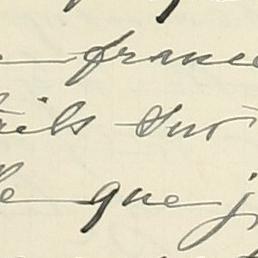 france
ails sur
que j